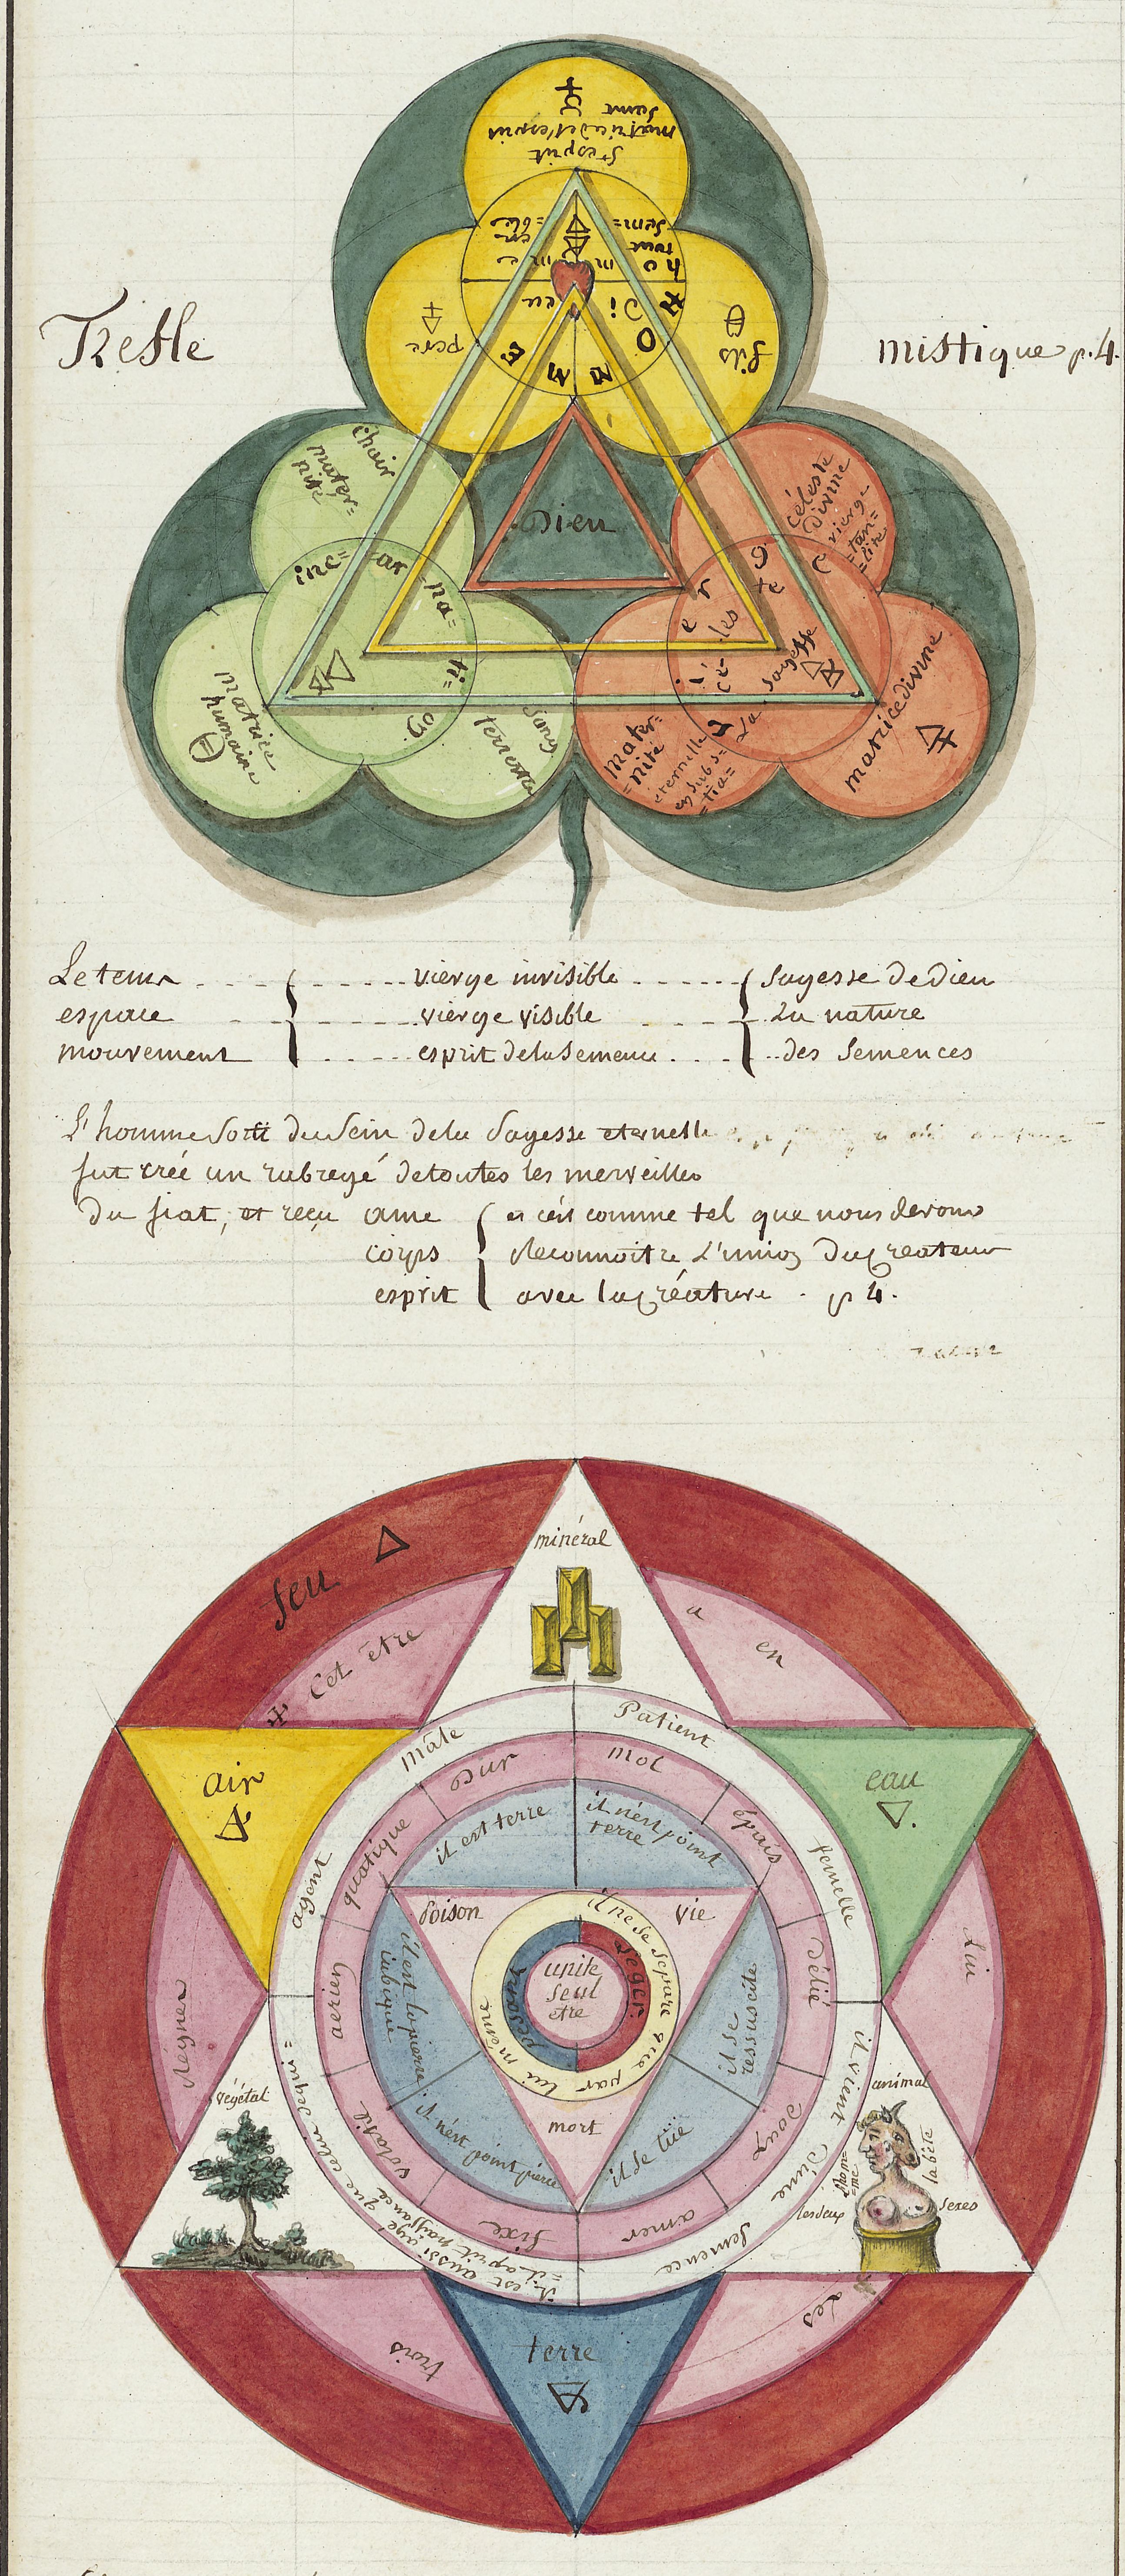 Trefle
mistique p. 4.
St esprit
pere
fils
homme
Dieu
Dieu
chair
mater=
nité
inc=
ar
=na=
ti=
on
matrice
humaine
sang
terrestre
céleste
divine
vierge
matrice divine
mater=
=nité
eternelle
en subs=
=tia=
La sagesse
Le tems - - - - - - vierge invisible - - - - - sagesse de dieu
espace - - - - - - vierge visible - - - - La nature
mouvement - - - - esprit de la Semence - - - - des Semences
L'homme sorti du Sein de la Sagesse eternelle
fut créé un abregé de toutes les merveilles
du fiat, et reçu ame
corps
esprit
et c'est comme tel que nous devons
Reconnoitre L'union du Createur
avec la Créature . p 4.
feu
minéral
Cet être
a
en
Lui
Les
trois
Régnes
air
eau
terre
végétal
animal
l'hom=
me
la bête
les deux
sexes
Mâle
Patient
femelle
il vient d'une Semence
il est aussi agé que celui de qui =
= il a prit naissance
agent
Dur
mol
épais
Délié
Doux
amer
fixe
volatil
aerien
quatique
il est terre
il n'est point
terre
il se
ressuscite
il se tüe
il n'est point pierre
il est la pierre
cubique
Poison
vie
mort
il ne se separe que par lui même
leger
pesant
unité
seul
etre